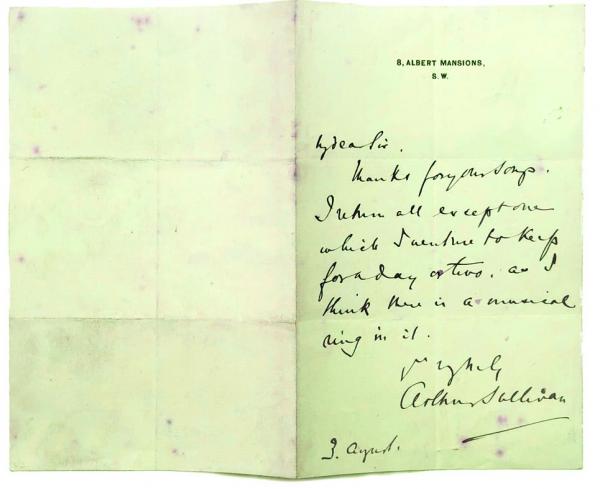 8, ALBERT MANSIONS,
S. W.
My dear Sir.
Thanks for your Songs.
I return all except one
which I venture to keep
for a day or two, as I
think there is a musical
ring in it.
Yrs
Arthur Sullivan
3. August.